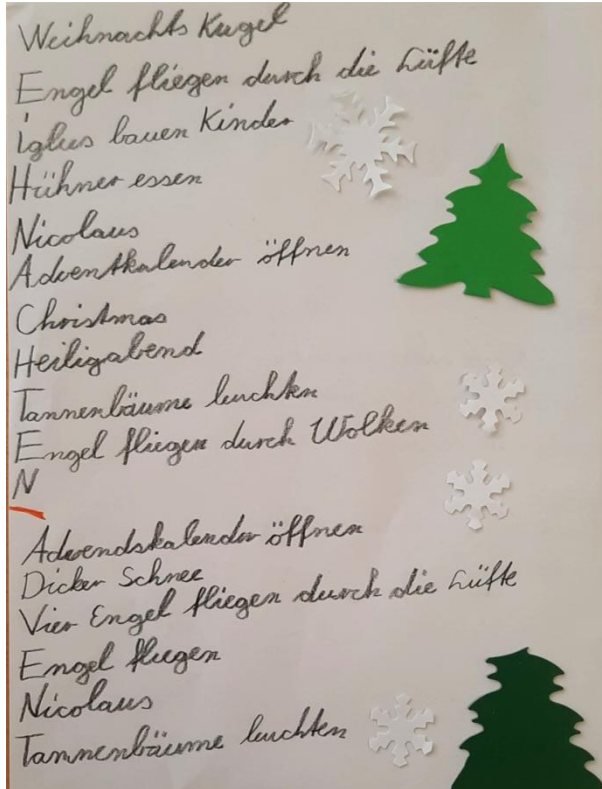 Weihnachts Kugel
Engel fliegen durch die Lüfte
Iglus bauen Kinder
Hühner essen
Nicolaus
Adventkalender öffnen
Christmas
Heiligabend
Tannenbäume leuchten
Engel fliegen durch Wolken
N
Advendskalender öffnen
Dicker Schnee
Vier Engel fliegen durch die Lüfte
Engel fliegen
Nicolaus
Tannenbäume leuchten